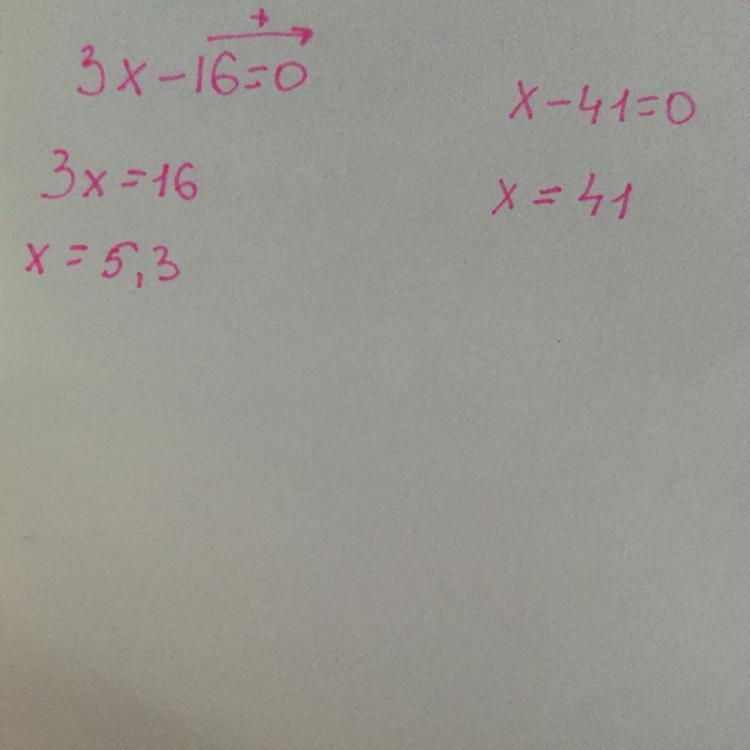 +
3x-16=0
3x=16
x=5,3
x-41=0
x=41